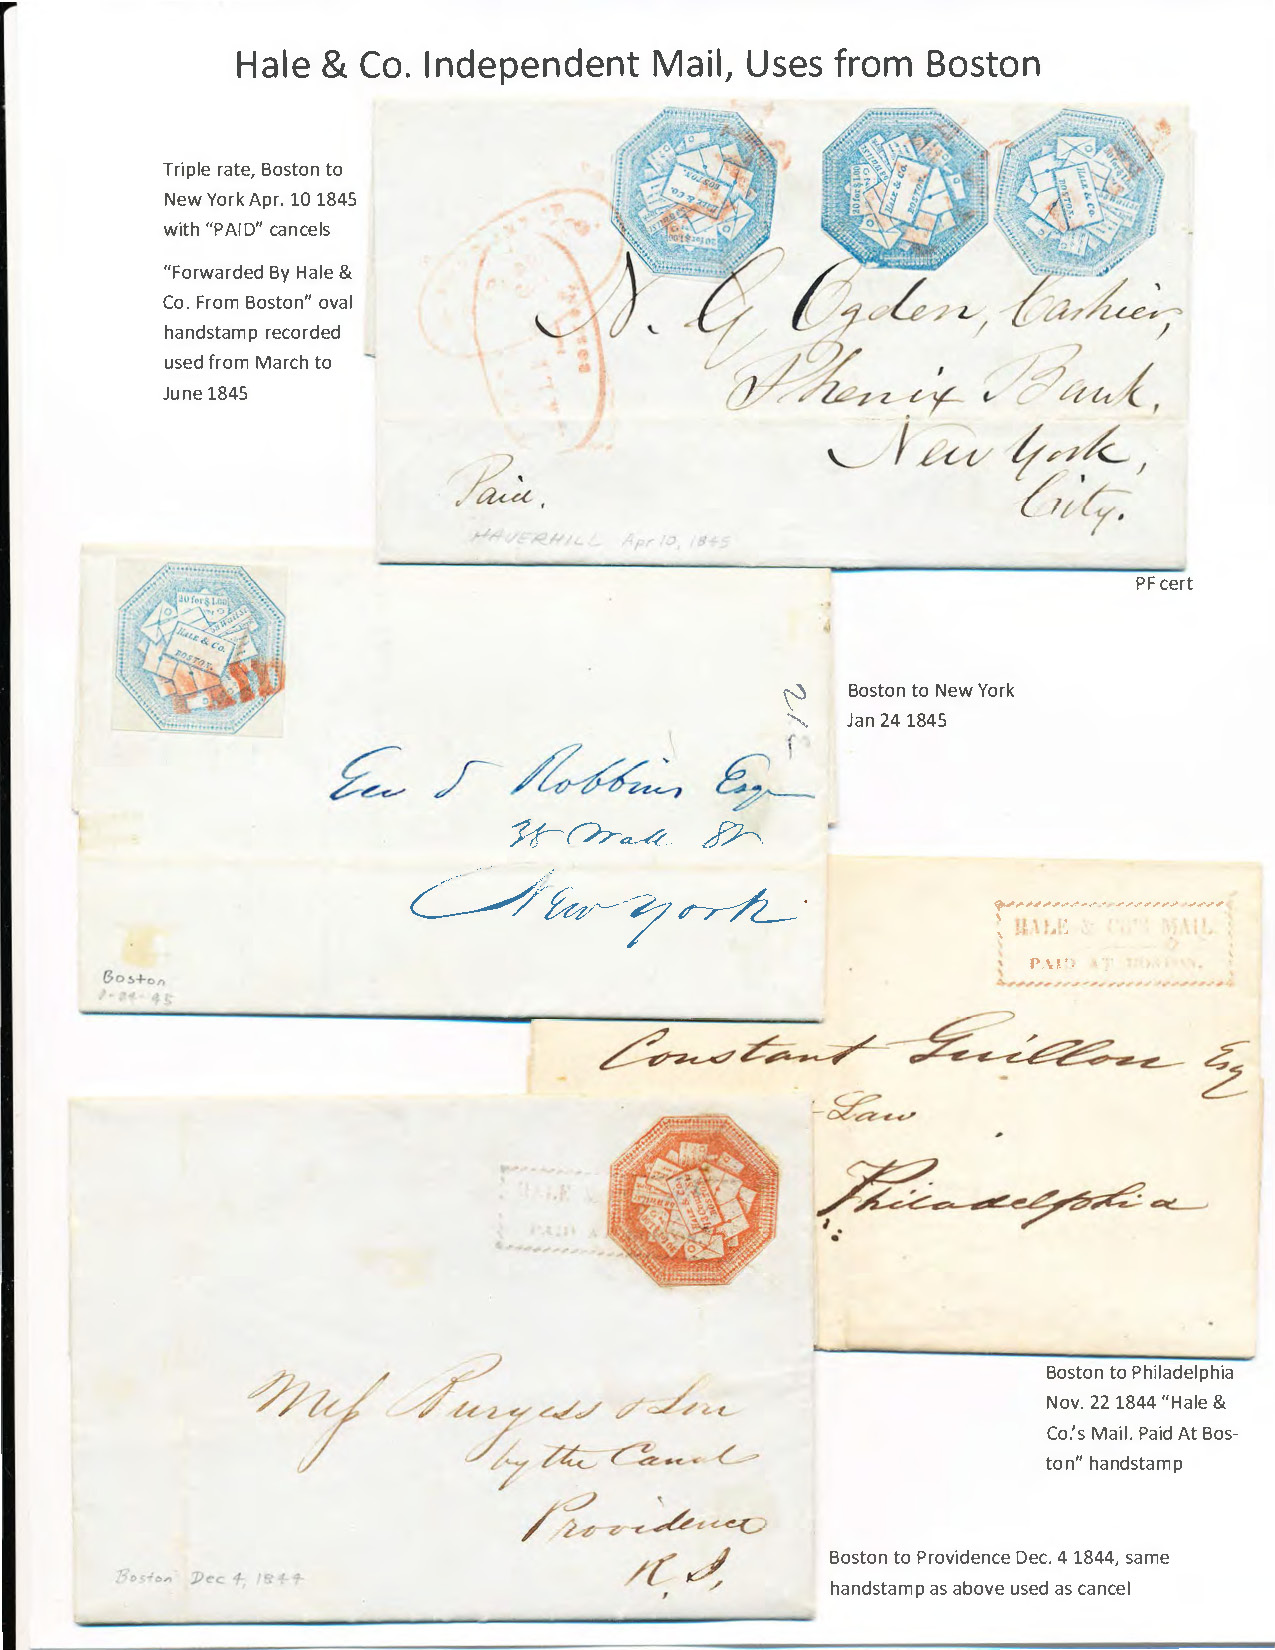 Hale & Co. Independent Mail, Uses from Boston
Triple rate, Boston to
New York Apr. 10 1845
with "PAID" cancels
"Forwarded By Hale &
Co. From Boston" oval
handstamp recorded
used from March to
June 1845
HALE & Co.
BOSTON
20 for $1.00
HALE & Co.
BOSTON.
20 for $1.00
HALE & Co.
BOSTON.
20 for $1.00
N. G Ogden, Cashier,
Phenix Bank,
New York,
City.
Paid.
HAVERHILL Apr 10, 1845
PF cert
20 for $1.00
HALE & Co.
BOSTON.
Boston to New York
Jan 24 1845
Geo S Robbins Esq
38 Wall St
New York
Boston
1-24-45
HALE & CO'S MAIL.
PAID AT BOSTON.
Constant Guillou Esq
-Law
Philadelphia
HALE &
PAID A
HALE & Co.
BOSTON
Mess Burgess & Son
by the Canal
Providence
R. I.
Boston Dec 4, 1844
Boston to Philadelphia
Nov. 22 1844 "Hale &
Co.'s Mail. Paid At Bos-
ton" handstamp
Boston to Providence Dec. 4 1844, same
handstamp as above used as cancel